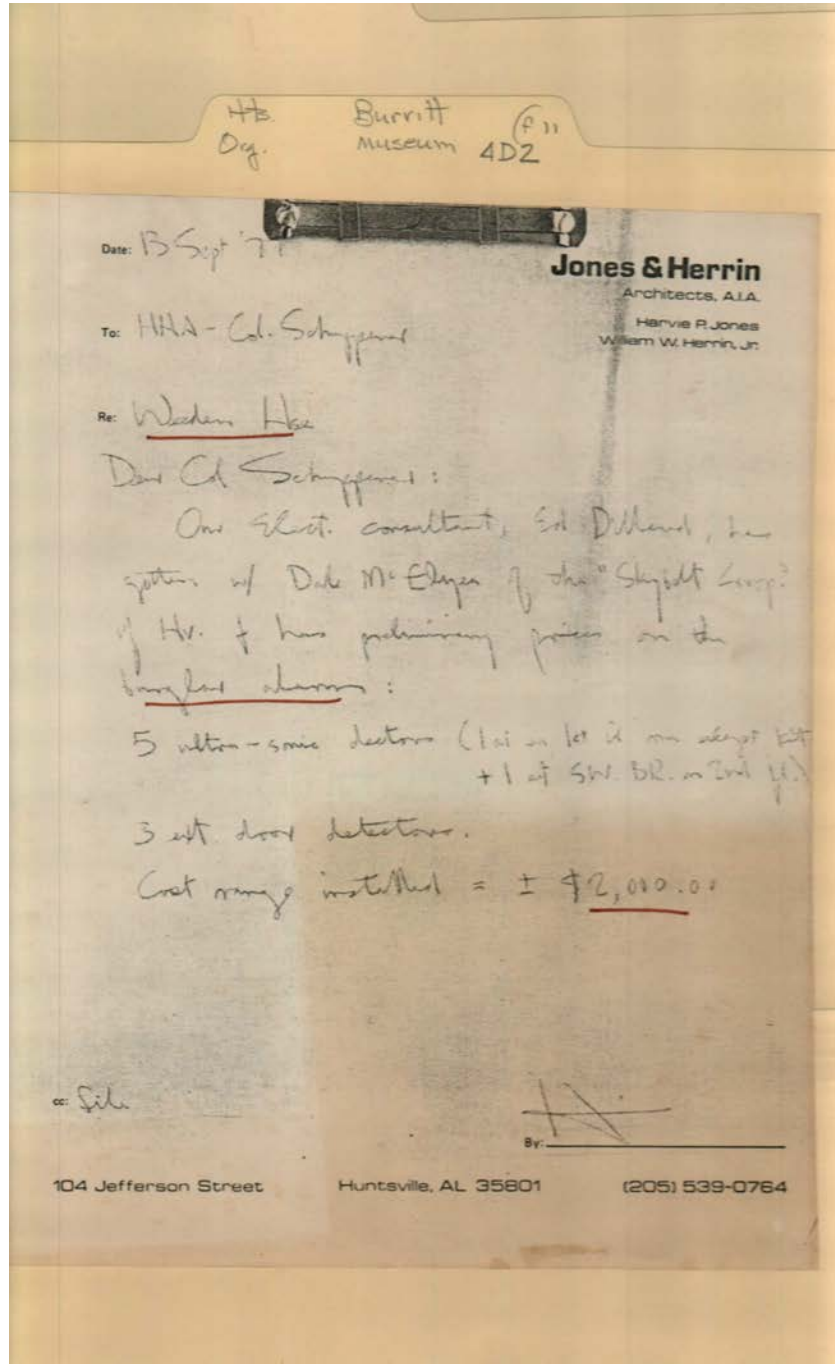 Hts. Burritt (f 11
Org. Museum 4D2
Date: 13 Sept '77
Jones & Herrin
Architects, A.I.A.
Harvie P. Jones
William W. Herrin, Jr.
To: HHA - Col.
Re: Weeden Hse
Dear Col :
Our Elect. consultant, Ed Dillard, has
gotten w/ Dale McElyea of the
of Hv. & has preliminary prices on the
burglar alarms:
5 ultra-sonic dectors (1
+ 1 at SW. BR. on 2nd fl.)
3 ext. door detectors.
Cost range installed = ± $2,000.00
cc: file
By:
104 Jefferson Street Huntsville, AL 35801 (205) 539-0764